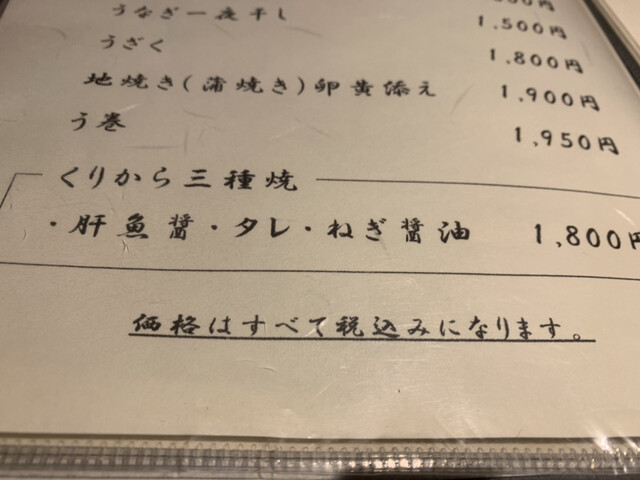 うなぎ一夜干し 1,500円
うざく 1,800円
地焼き(蒲焼き)卵黄添え 1,900円
う巻 1,950円
くりから三種焼
・肝魚醤・タレ・ねぎ醤油 1,800円
価格はすべて税込みになります。